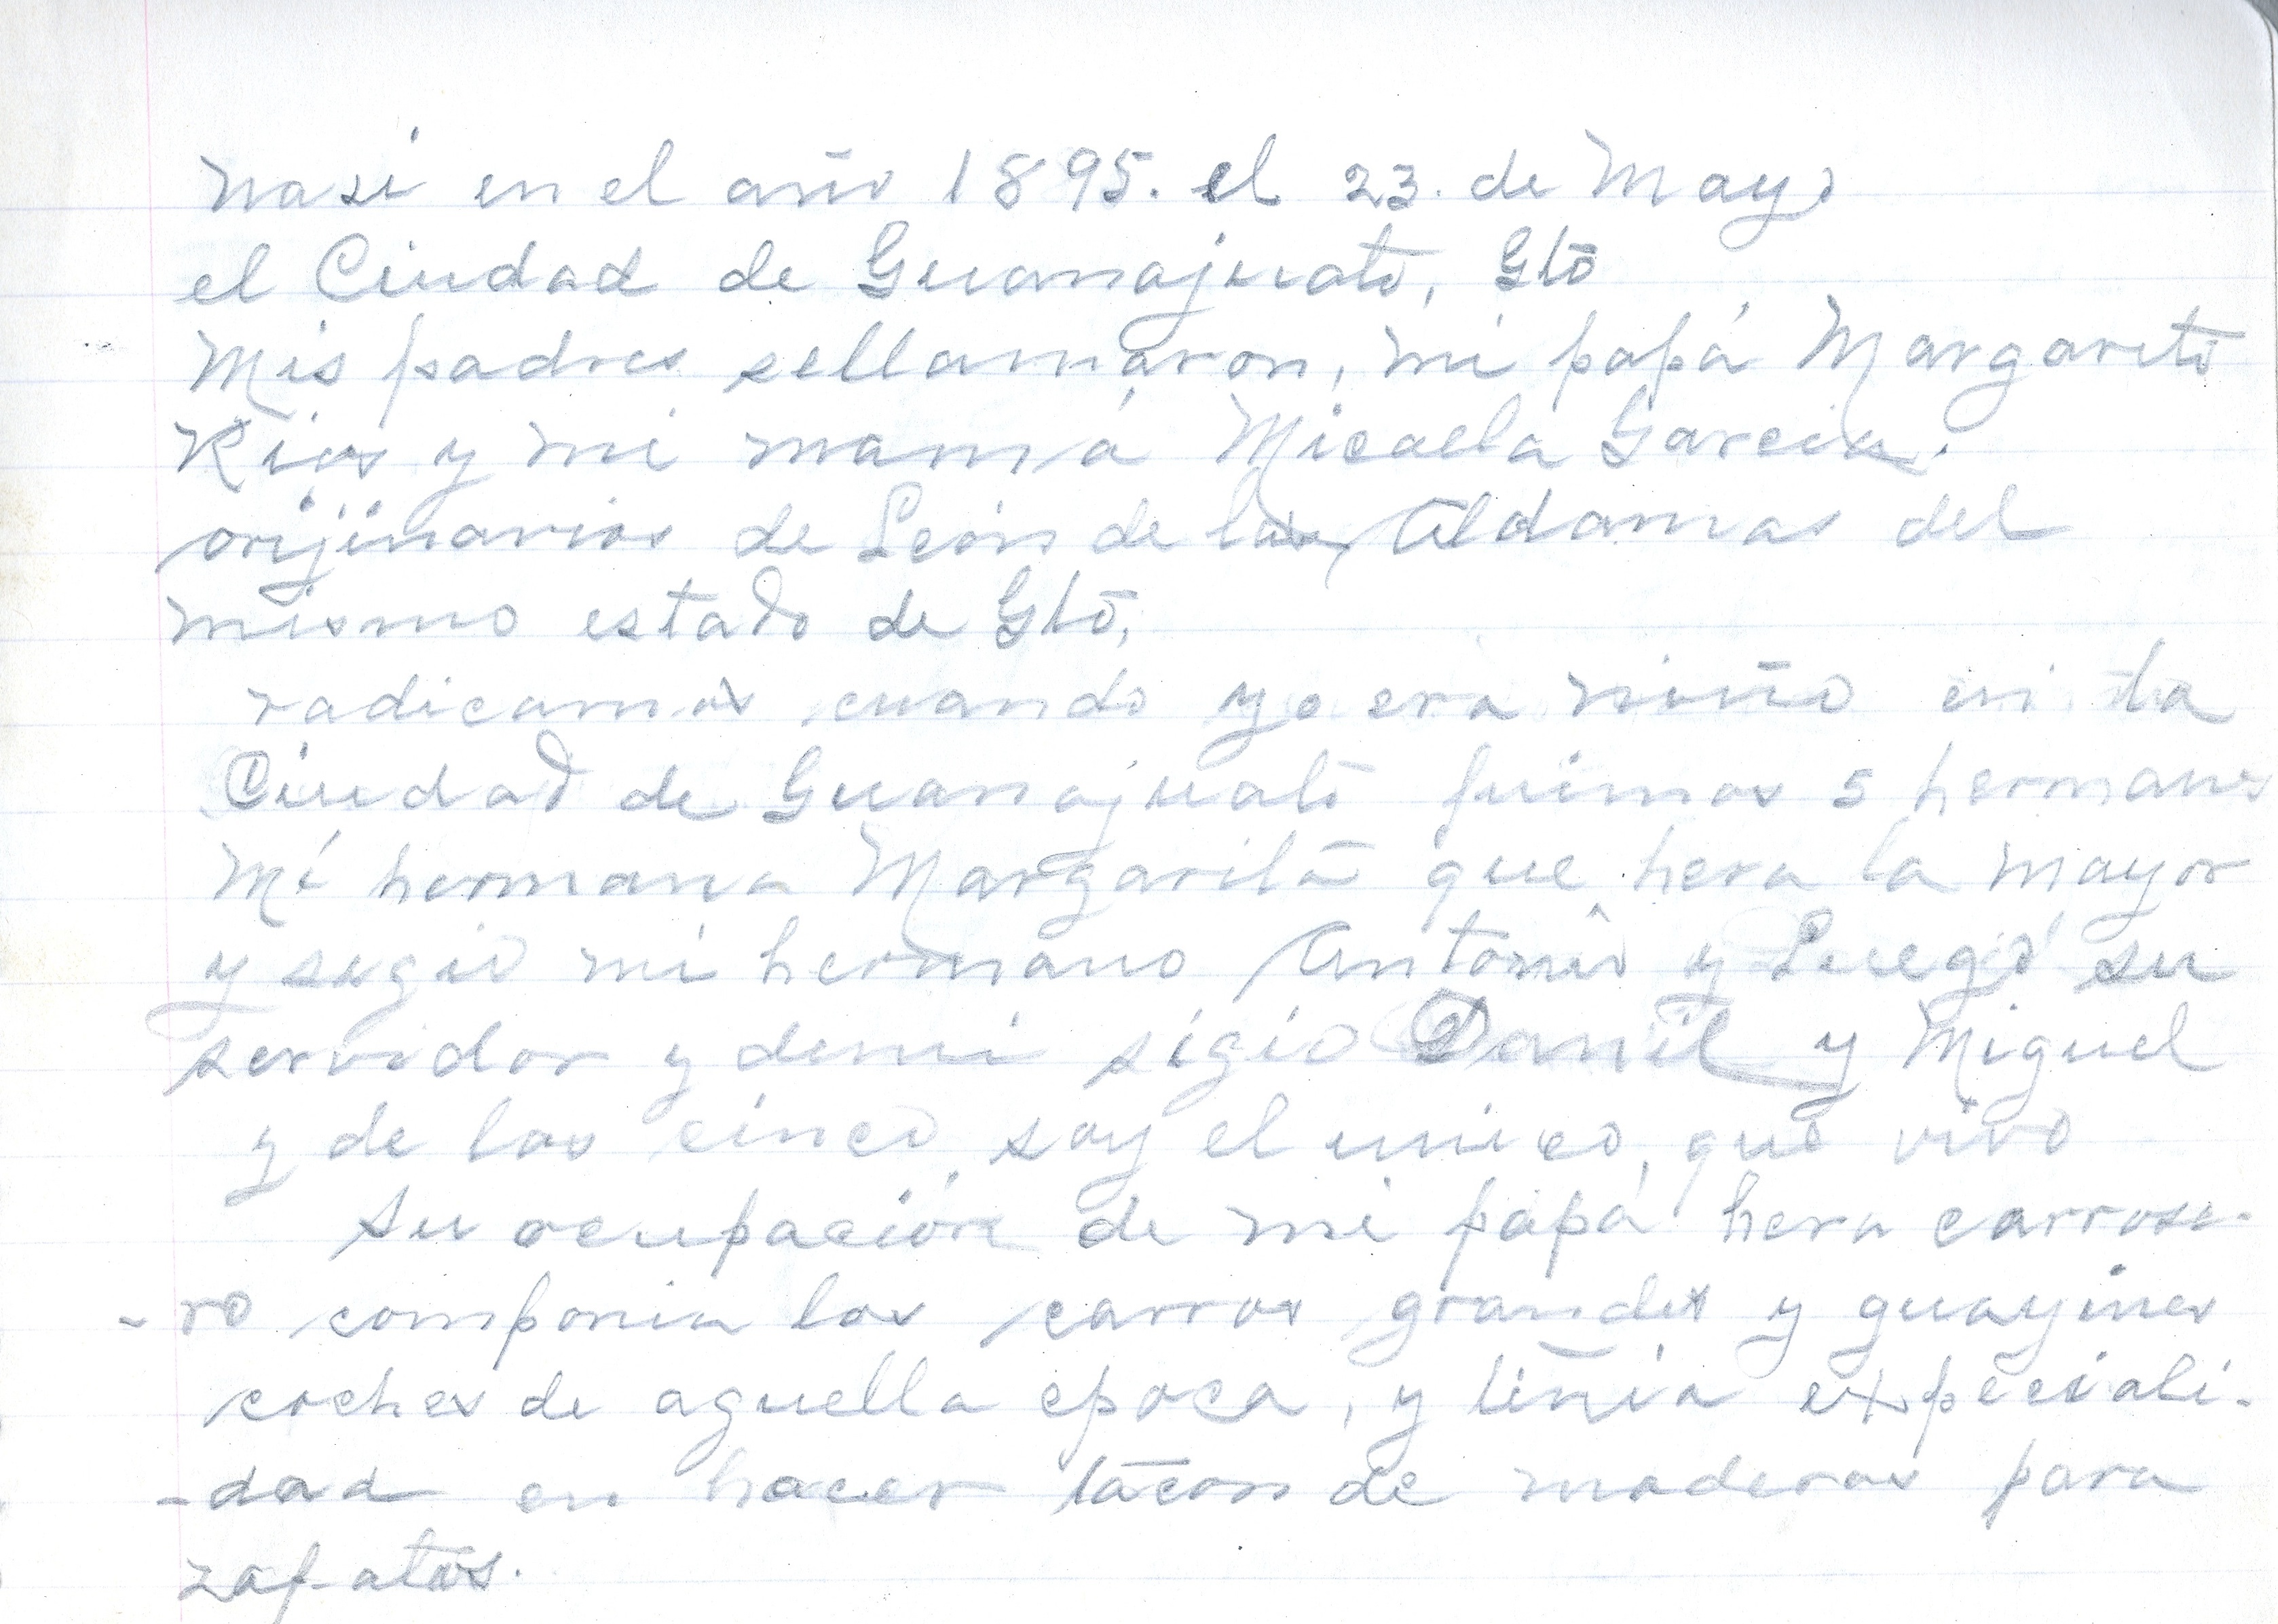 Nasi en el año 1895. el 23. de Mayo
el Ciudad de Guanajuato, Gto
Mis padres sellamaron, mi papá Margarito
Rios y mi mamá Micaela Garcia.
orijinarios de León de los Aldamas del
mismo estado de Gto,
radicamos cuando yo era niño en la
Ciudad de Guanajuato fuimos 5 hermanos
Mi hermana Margarita que hera la mayor
y sigio mi hermano Antonio y Luego su
servidor y demi sigio Daniel y Miguel
y de los cinco soy el unico, que vivo
Su ocupación de mi papá hera carrose-
-ro componia los carros grandes y guayines
coches de aquella epoca, y tinia expeciali-
-dad en hacer tacon de maderas para
zapatos.